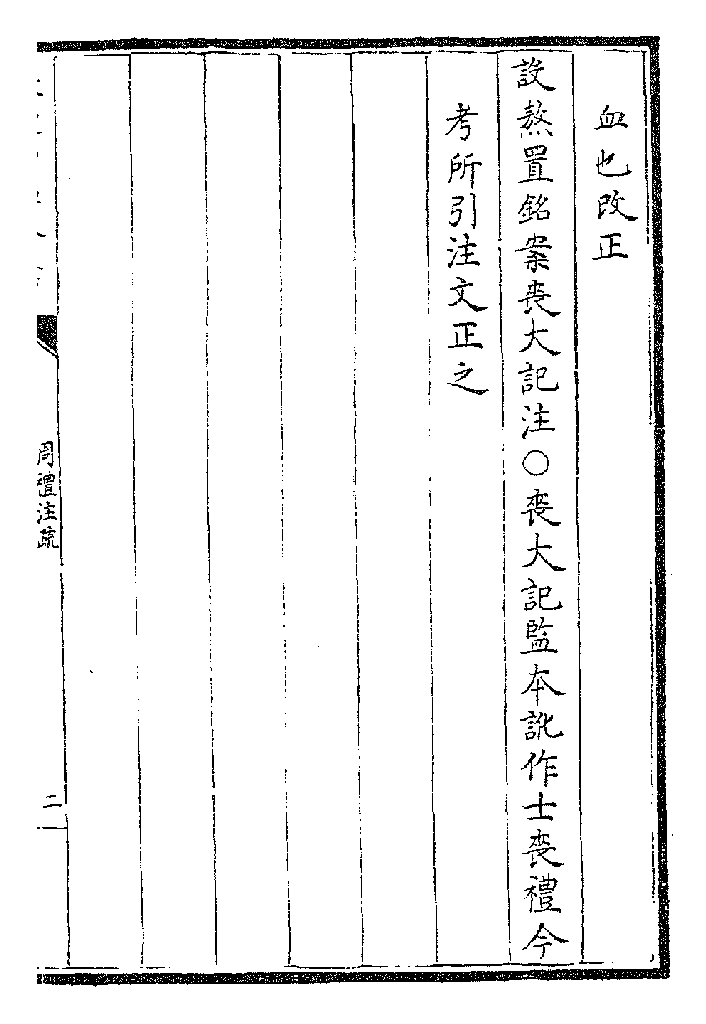 血也改正
設熬置銘案喪大記注○喪大記監本訛作士喪禮今
考所引注文正之
周禮注疏
二